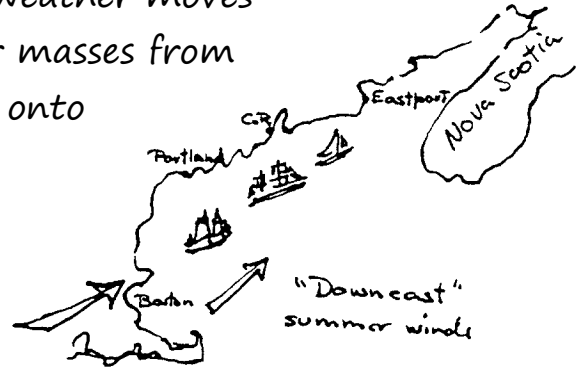 weather moves
masses from
onto
Eastport
Nova Scotia
Portland
Boston
"Downeast"
summer winds